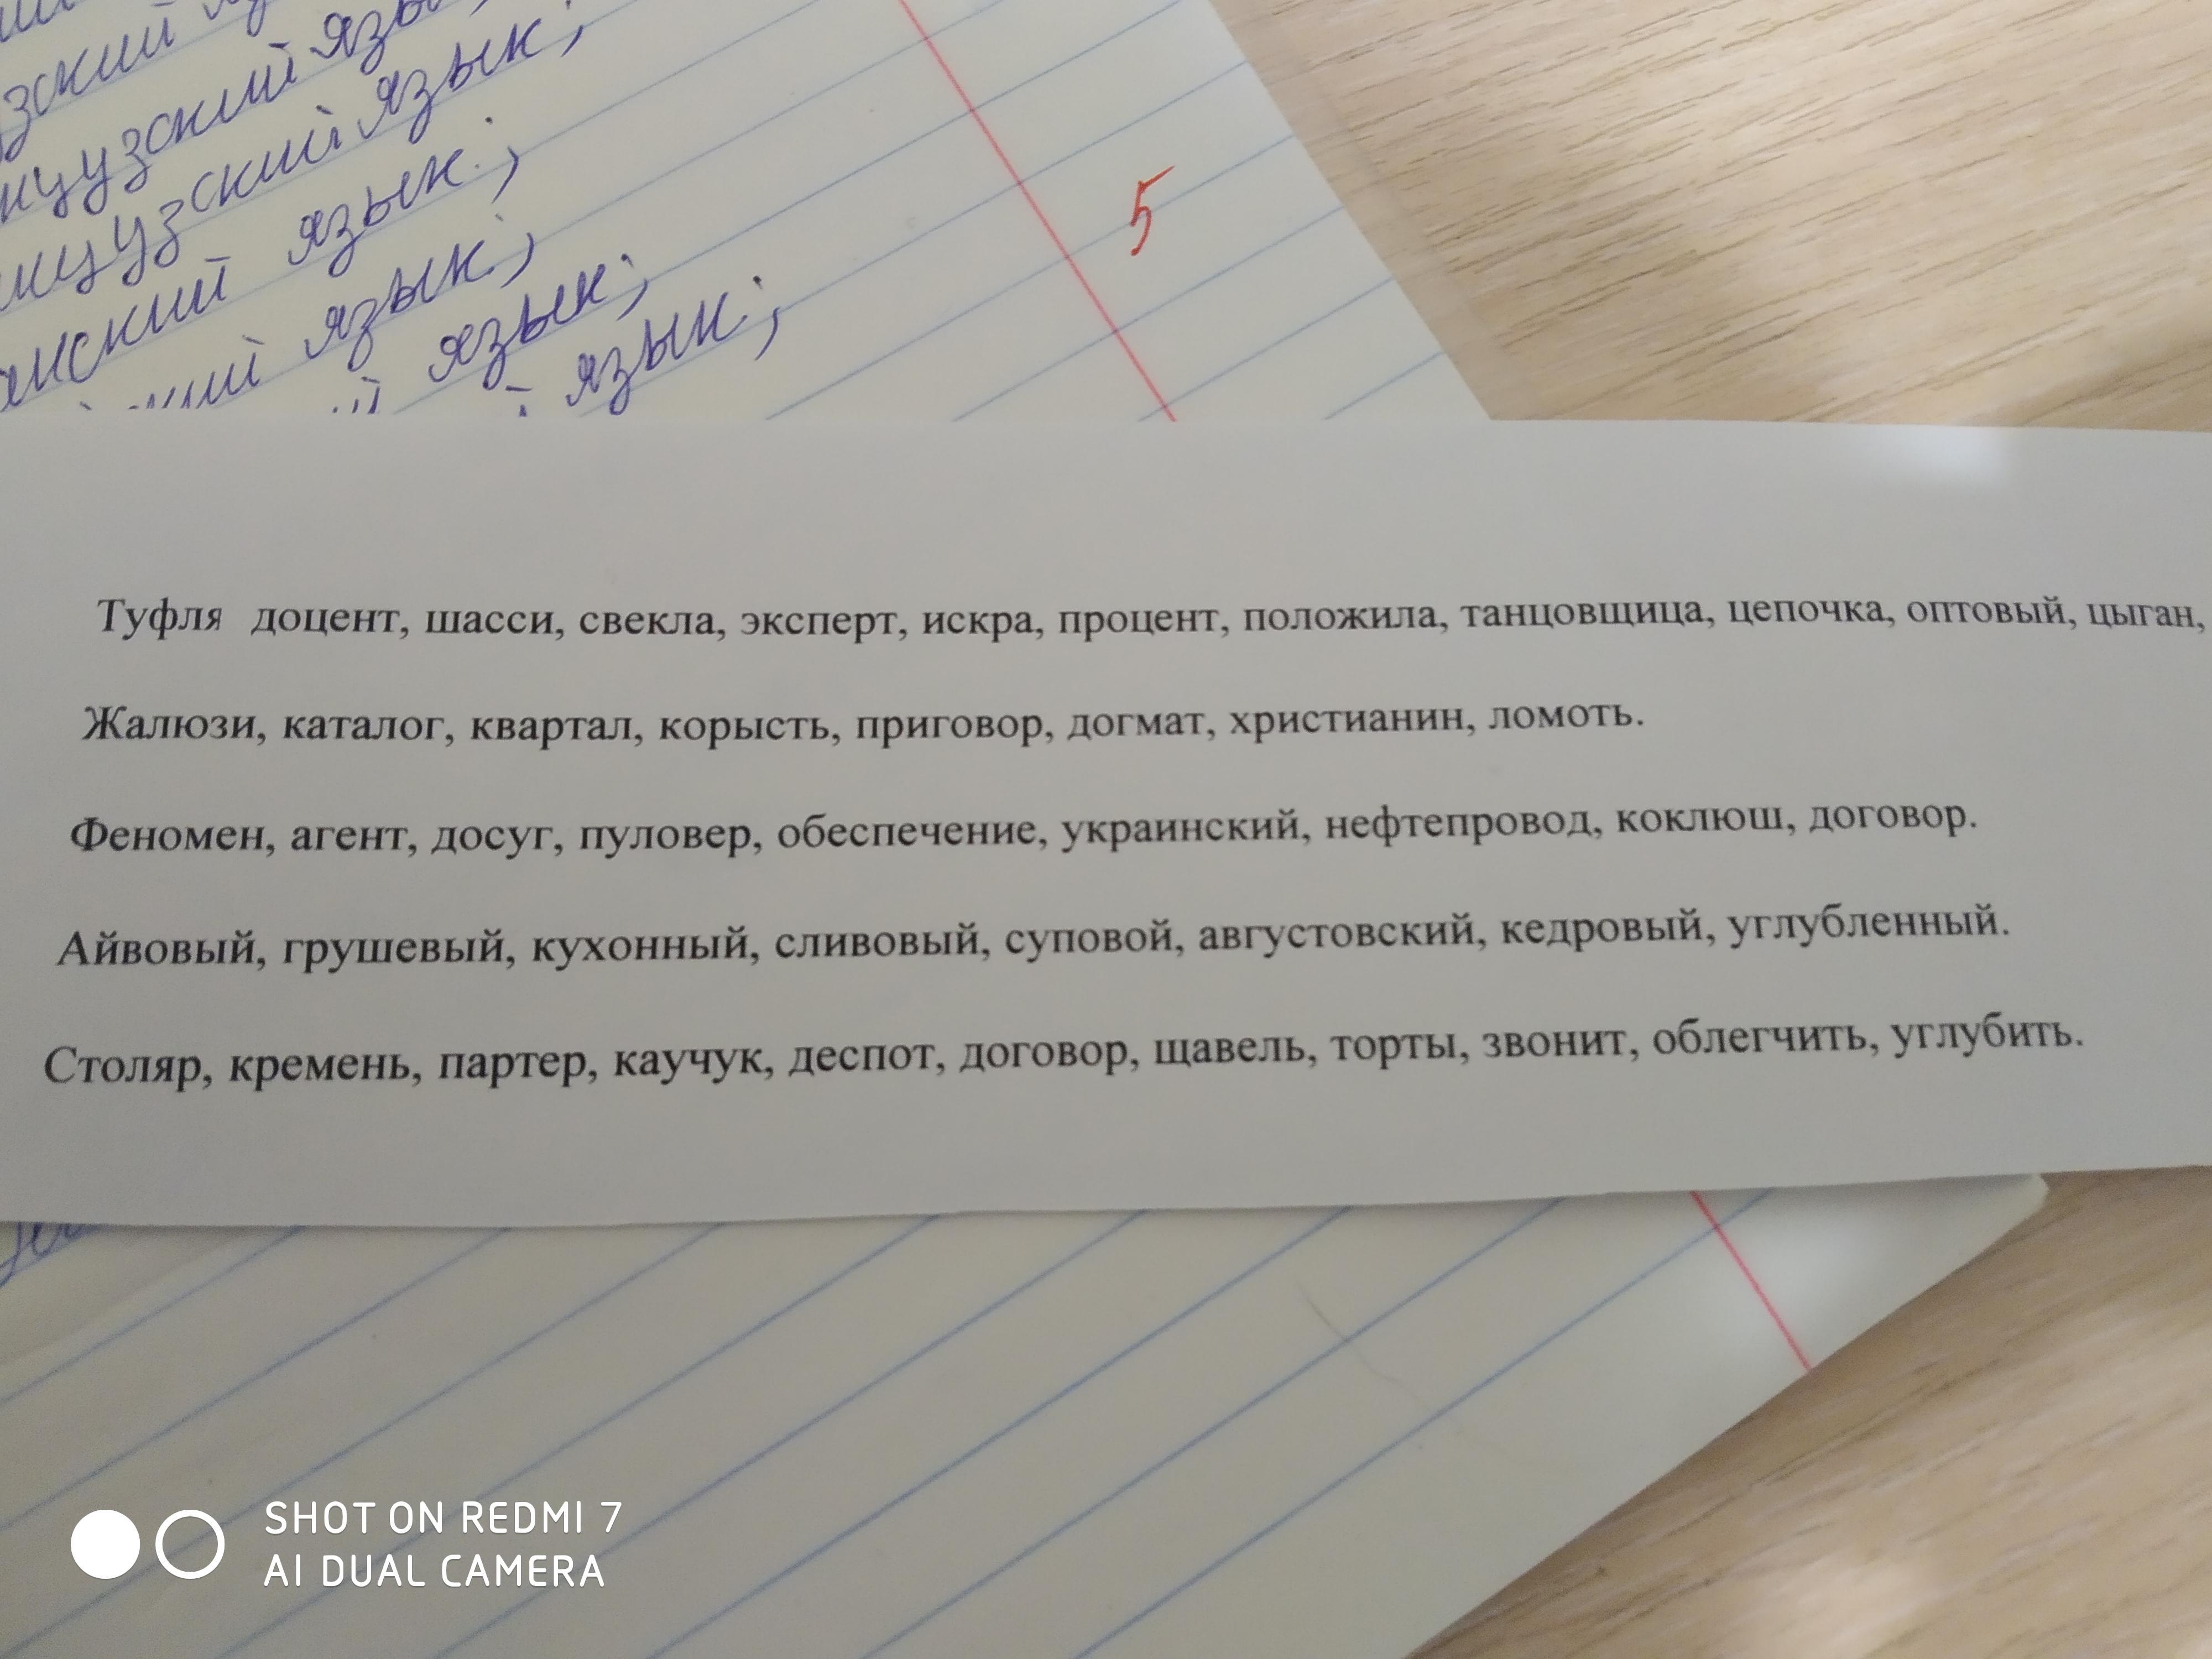 язык;
язык;
язык;
язык;
язык;
5
Туфля доцент, шасси, свекла, эксперт, искра, процент, положила, танцовщица, цепочка, оптовый, цыган,
Жалюзи, каталог, квартал, корысть, приговор, догмат, христианин, ломоть.
Феномен, агент, досуг, пуловер, обеспечение, украинский, нефтепровод, коклюш, договор.
Айвовый, грушевый, кухонный, сливовый, суповой, августовский, кедровый, углубленный.
Столяр, кремень, партер, каучук, деспот, договор, щавель, торты, звонит, облегчить, углубить.
SHOT ON REDMI 7
AI DUAL CAMERA